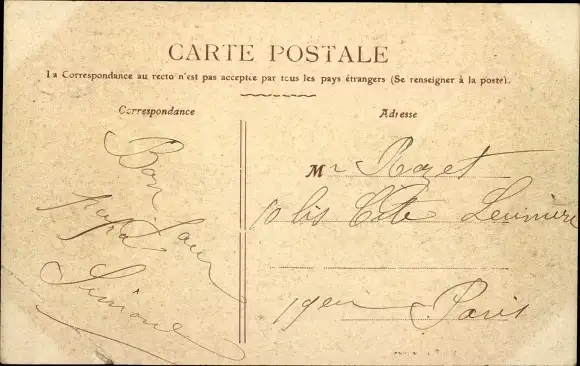 CARTE POSTALE
La Correspondance au recto n'est pas acceptée par tous les pays étrangers (Se renseigner à la poste).
Correspondance
Bon Jour
papa
Simone
Adresse
Mr Rozet
10 bis Cité
19em Paris